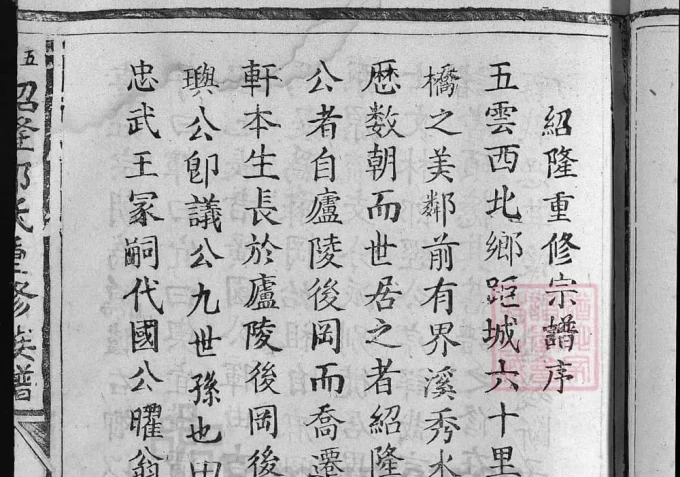 紹隆重修宗譜序
五雲西北鄉距城六十里
橋之美鄰前有界溪秀水
歷数朝而世居之者紹隆
公者自廬陵後岡而喬遷
軒本生長於廬陵後岡後
璵公卽議公九世孫也由
忠武王冢嗣代國公曜翁
五
紹隆郭氏重修族譜